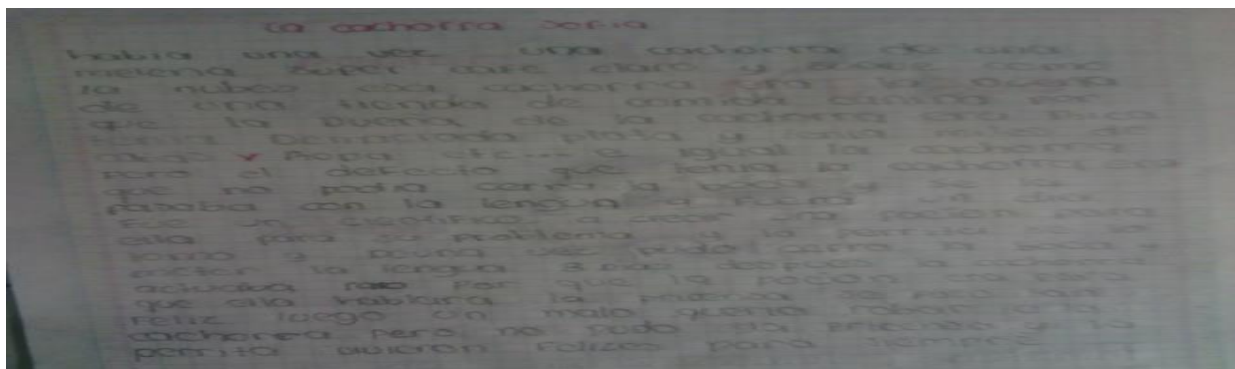 la cachorra sofia
habia una vez una cachorra de una
melena super cafe claro y suave como
la nubes esa cachorra era la dueña
de una tienda de comida canina por
que la Dueña de la cachorra era Rica
tenia Demaciada plata y tenia miles de
y Ropa etc... e igual la cachorra
pero el defecto que tenia la cachorra era
que no podia cerra la boca y se la
pasaba con la lengua a fuera un dia
fue un cientifico a crear una pocion para
ella para su problema y la perrita se la
tomo y pouna se pudo cerra la boca y
meter la lengua 3 mas despues la cachorra
actuaba raro por que la pocion era para
que ella hablara la princesa se puso muy
feliz luego un malo queria robar a la
cachorra pero no pudo la princesa y la
perrita vivieron felices para siempre